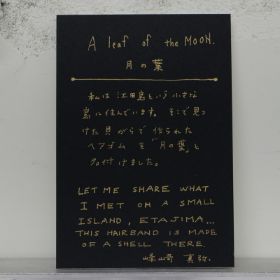 A leaf of the MOON.
月の葉
私は江田島という小さな
島に住んでいます。そこで見つ
けた貝がらで作られた
ヘアゴムを「月の葉」と
名付けました。
LET ME SHARE WHAT
I MET ON A SMALL
ISLAND, ETAJIMA...
THIS HAIRBAND IS MADE
OF A SHELL THERE
峰崎 真弥.